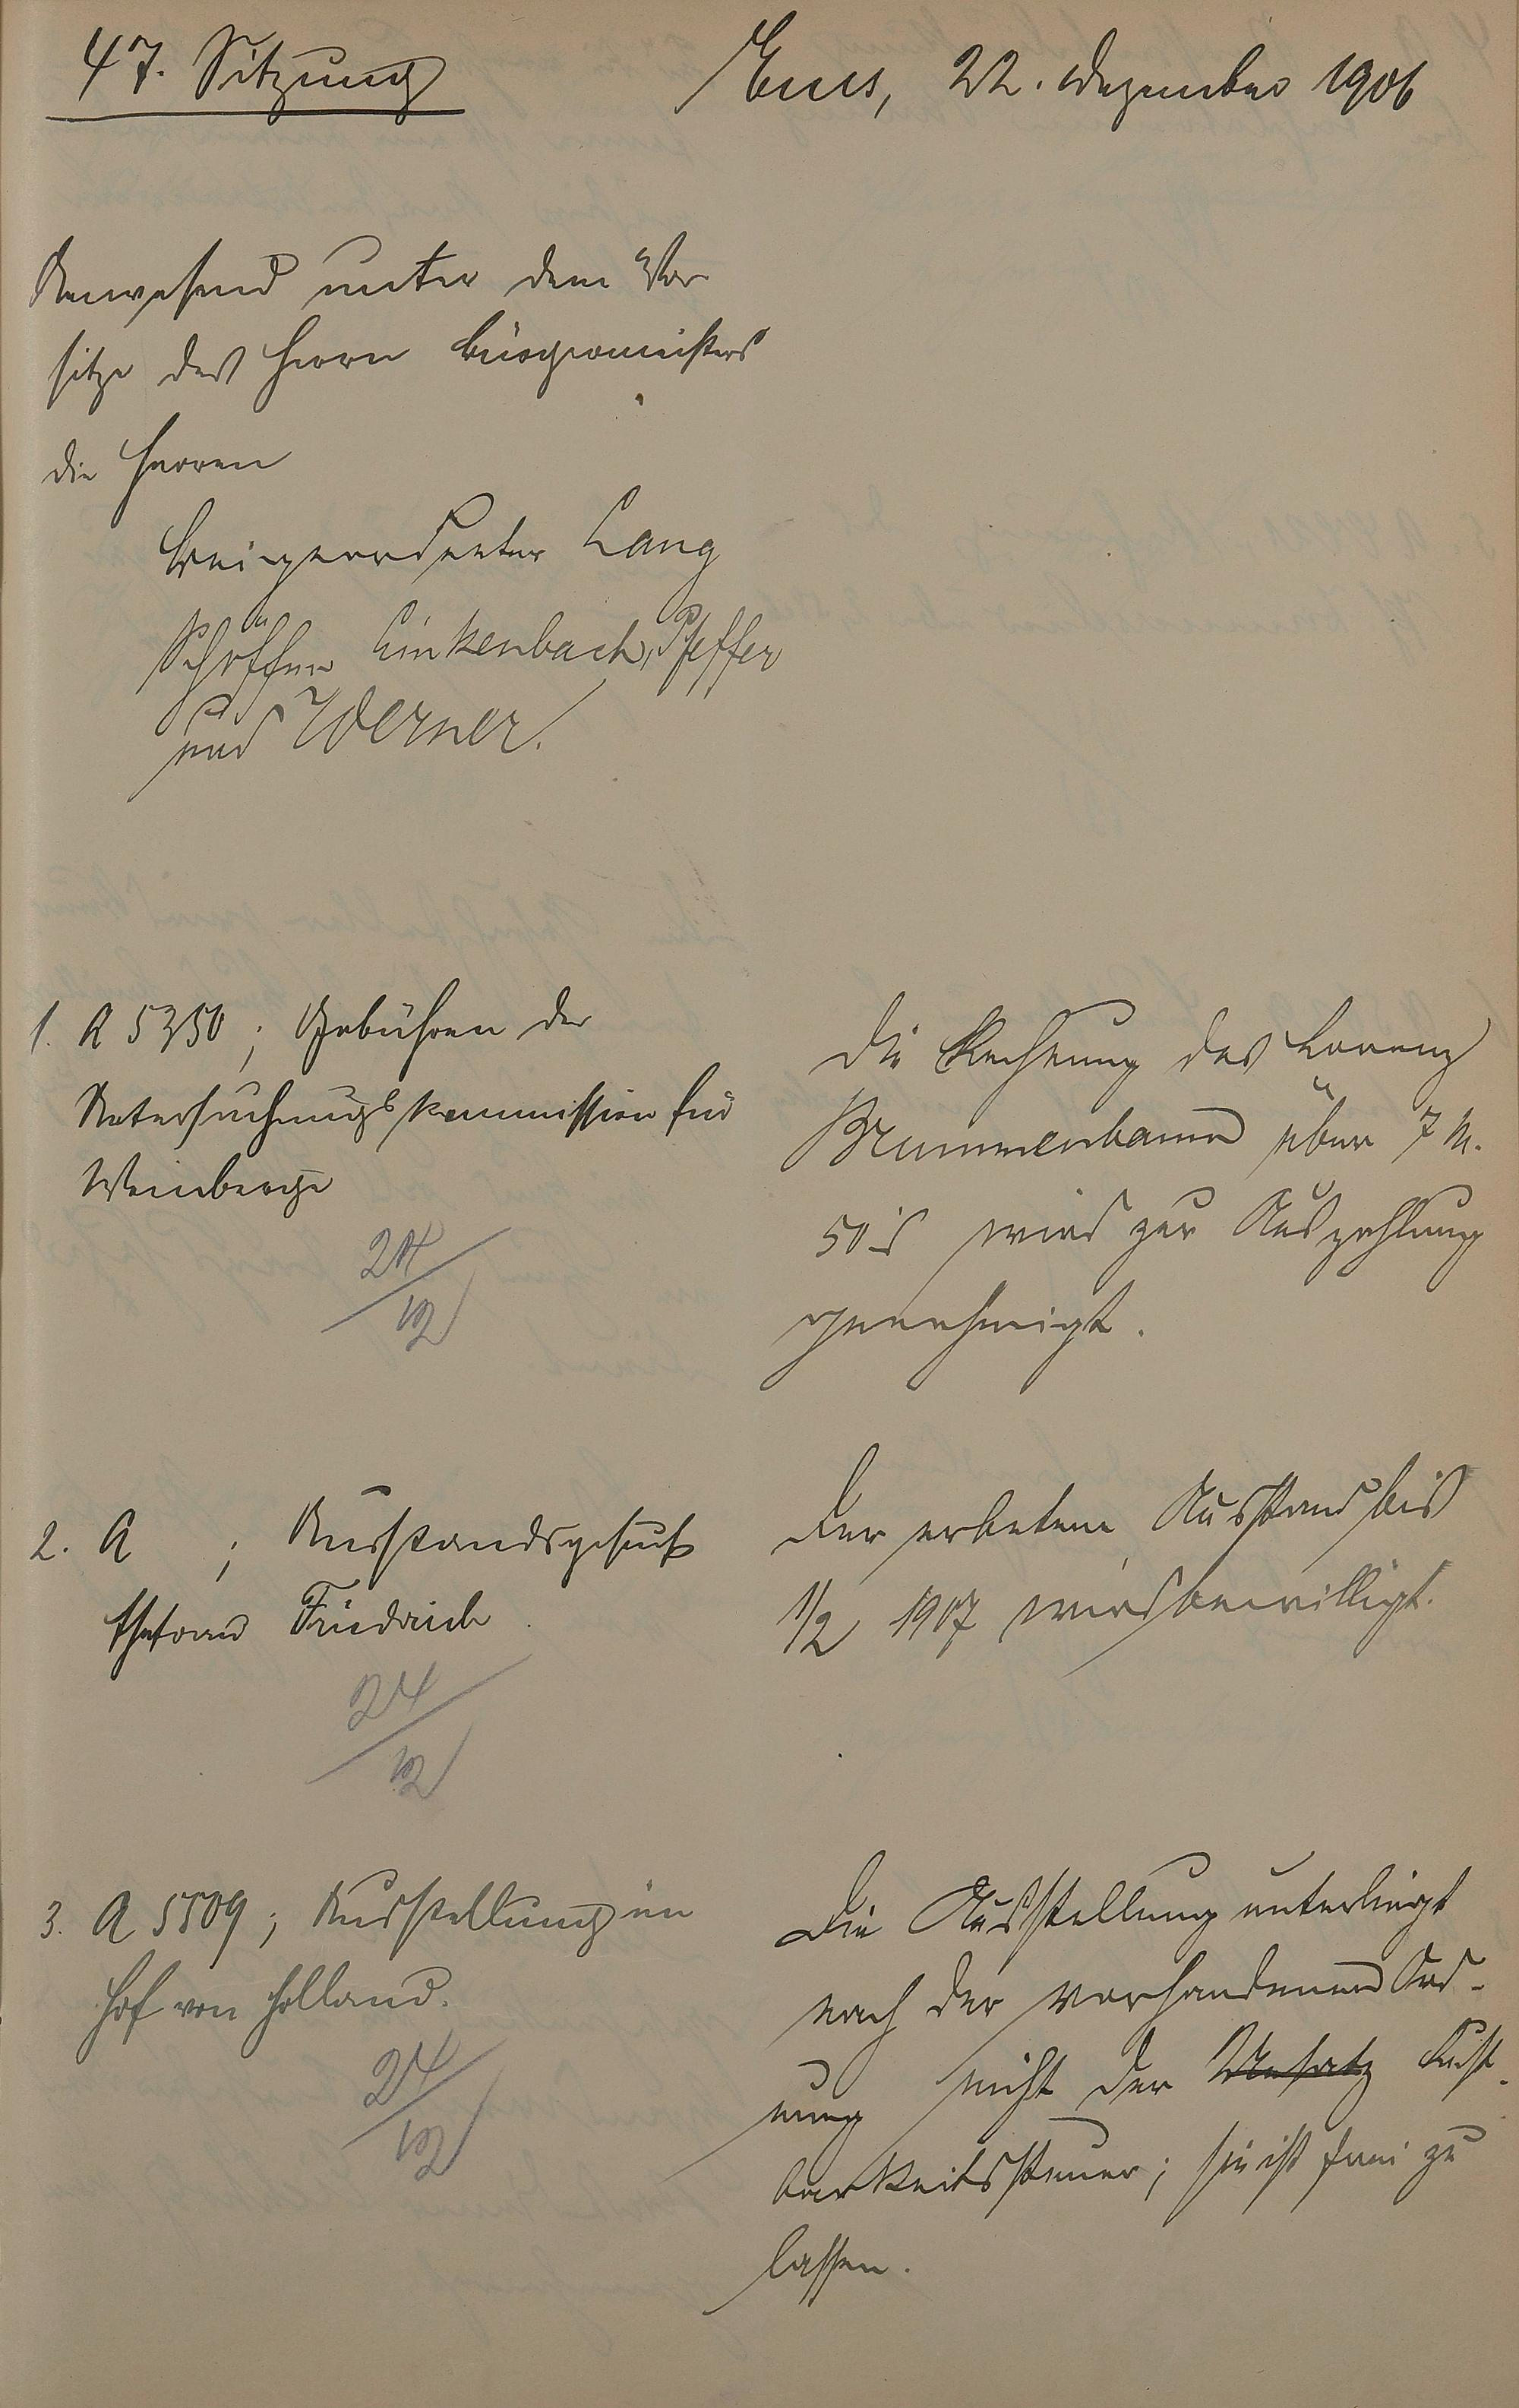 47. Sitzung
Ems, 22. Dezember 1906
Anwesend unter dem Vor
sitze des Herrn Bürgermeisters
die Herren
Beigeordneter Lang
Schöffen Linkenbach, Pfeffer
und Werner.
1. A 5350; Gebühren der
Untersuchungskommission für
Weinberge
24/12
Die Rechnung des Lorenz
Brummenbaum über 7 M.
50 wird zur Auszahlung
genehmigt.
2. A ; Ausstandsgesuch
Ehefrau Friedrich
24/12
Der erbetene Ausstand bis
1/2 1907 wird bewilligt.
3. A 5509; Ausstellung im
Hof von Holland.
24/12
Die Ausstellung unterliegt
nach der vorhandenen Ord-
nung nicht der Umsatz Lust-
barkeitssteuer; sie ist frei zu
lassen.